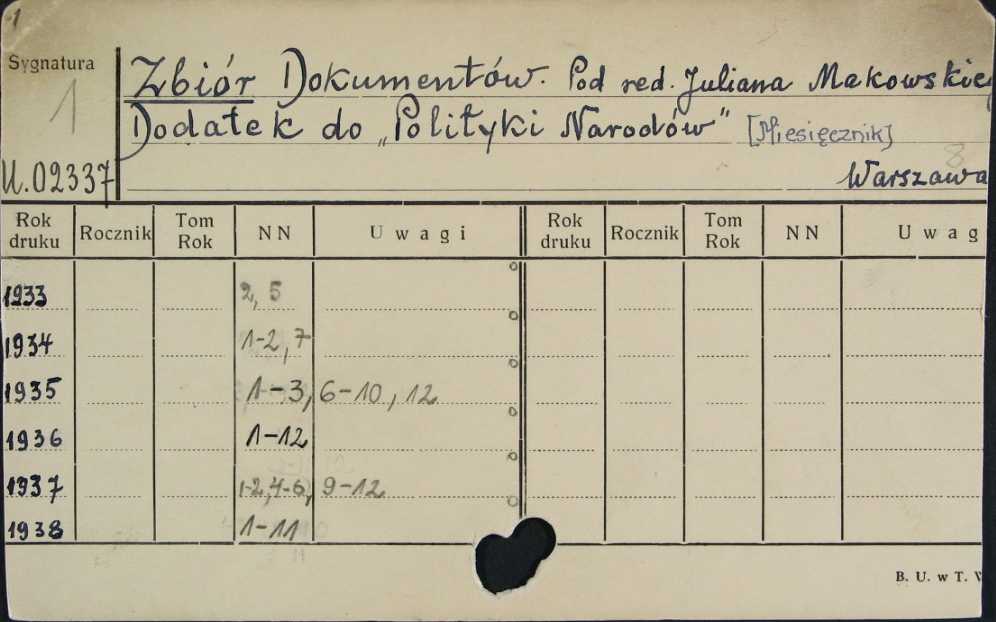 1
Sygnatura
1
U.02337
Zbiór Dokumentów. Pod red. Juliana Makowskieg
Dodatek do „Polityki Narodów" [Miesięcznik]
8
Warszawa
Rok druku Rocznik Tom Rok NN Uwagi Rok druku Rocznik Tom Rok NN Uwag
1933 2, 5
1934 1-2, 7
1935 1-3, 6-10, 12
1936 1-12
1937 1-2, 4-6, 9-12
1938 1-11
B. U. w T.